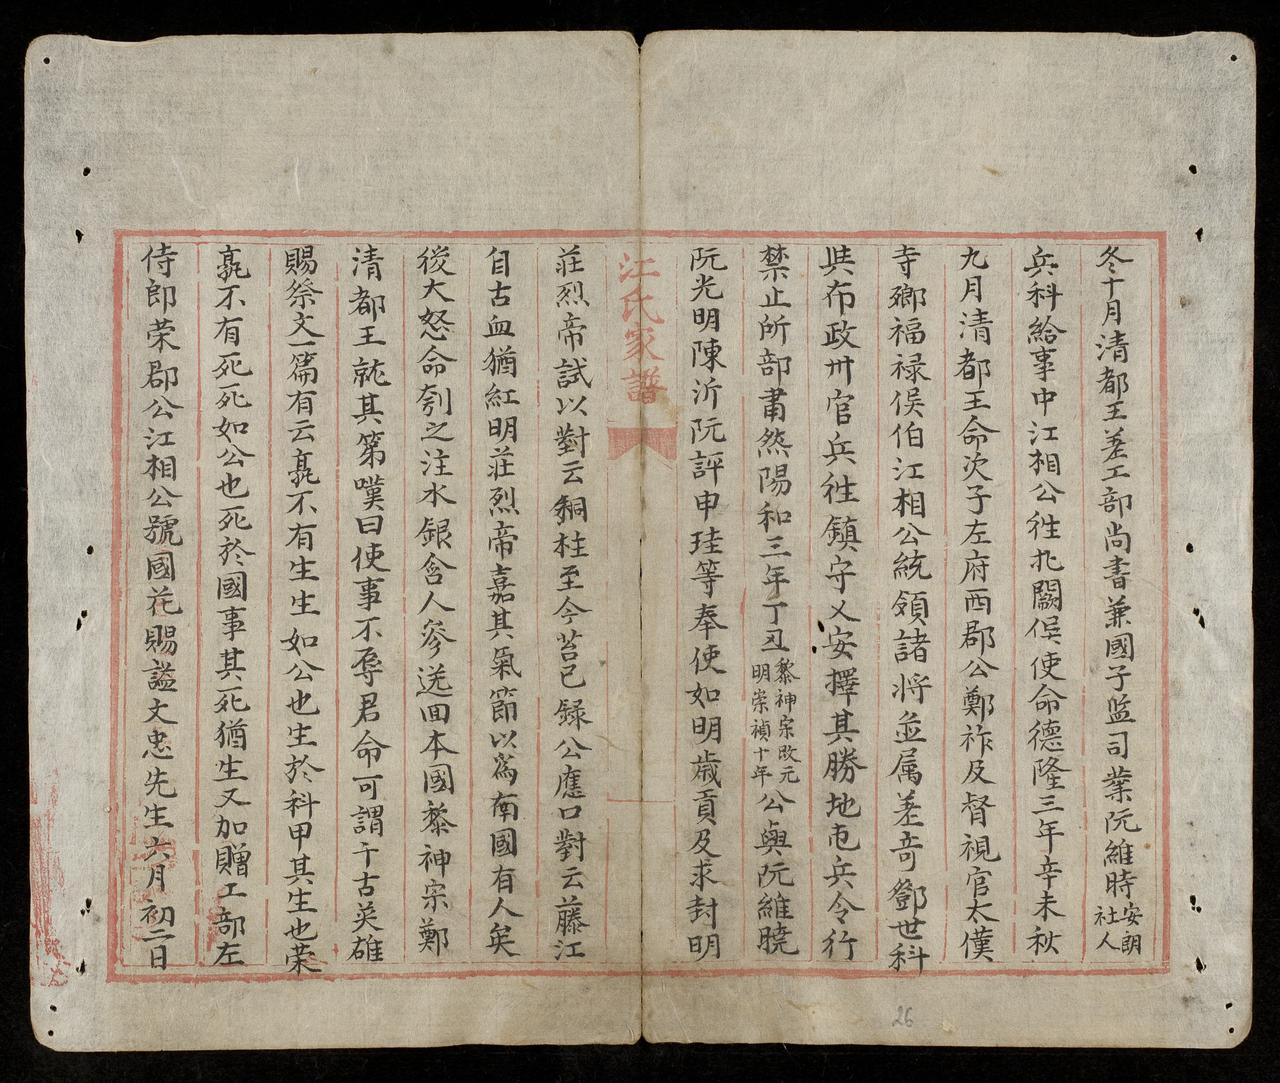 冬十月清都王差工部尚書兼國子监司業阮維時安朗社人
兵科給事中江相公徃北闕俟使命德隆三年辛未秋
九月清都王命次子左府西郡公鄭祚及督視官太僕
寺卿福禄侯伯江相公統領諸将並属差竒鄧世科
與布政卅官兵徃鎮守乂安擇其勝地屯兵令行
禁止所部肅然陽和三年丁丑黎神宗改元明崇禎十年公與阮維曉
阮光明陳沂阮評申珪等奉使如明歲貢及求封明
江氏家譜
莊烈帝試以對云銅柱至今苔已緑公應口對云藤江
自古血猶紅明莊烈帝嘉其氣節以爲南國有人矣
後大怒命刳之注水銀含人參送回本國黎神宗鄭
清都王就其第嘆曰使事不辱君命可謂千古英雄
賜祭文一篇有云孰不有生生如公也生於科甲其生也荣
孰不有死死如公也死於國事其死猶生又加贈工部左
侍郎荣郡公江相公號國花賜謚文忠先生六月初二日
26